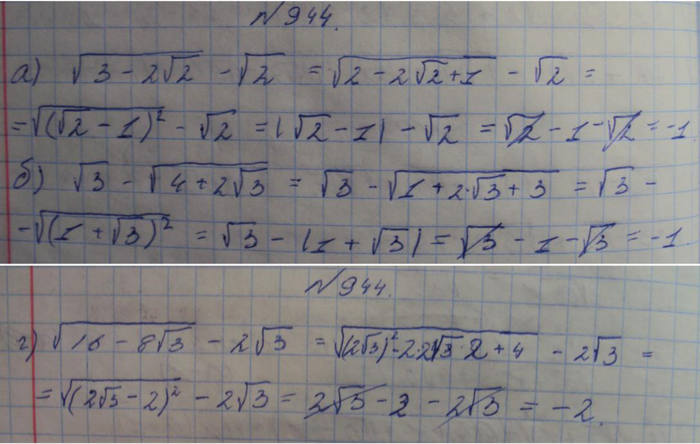 №944.
а) √(3 - 2√2) - √2 = √(2 - 2√2 + 1) - √2 =
= √((√2 - 1)²) - √2 = |√2 - 1| - √2 = √2 - 1 - √2 = -1
б) √3 - √(4 + 2√3) = √3 - √(1 + 2·√3 + 3) = √3 -
- √((1 + √3)²) = √3 - |1 + √3| = √3 - 1 - √3 = -1.
№944.
г) √(16 - 8√3) - 2√3 = √((2√3)² - 2·2√3·2 + 4) - 2√3 =
= √((2√3 - 2)²) - 2√3 = 2√3 - 2 - 2√3 = -2.